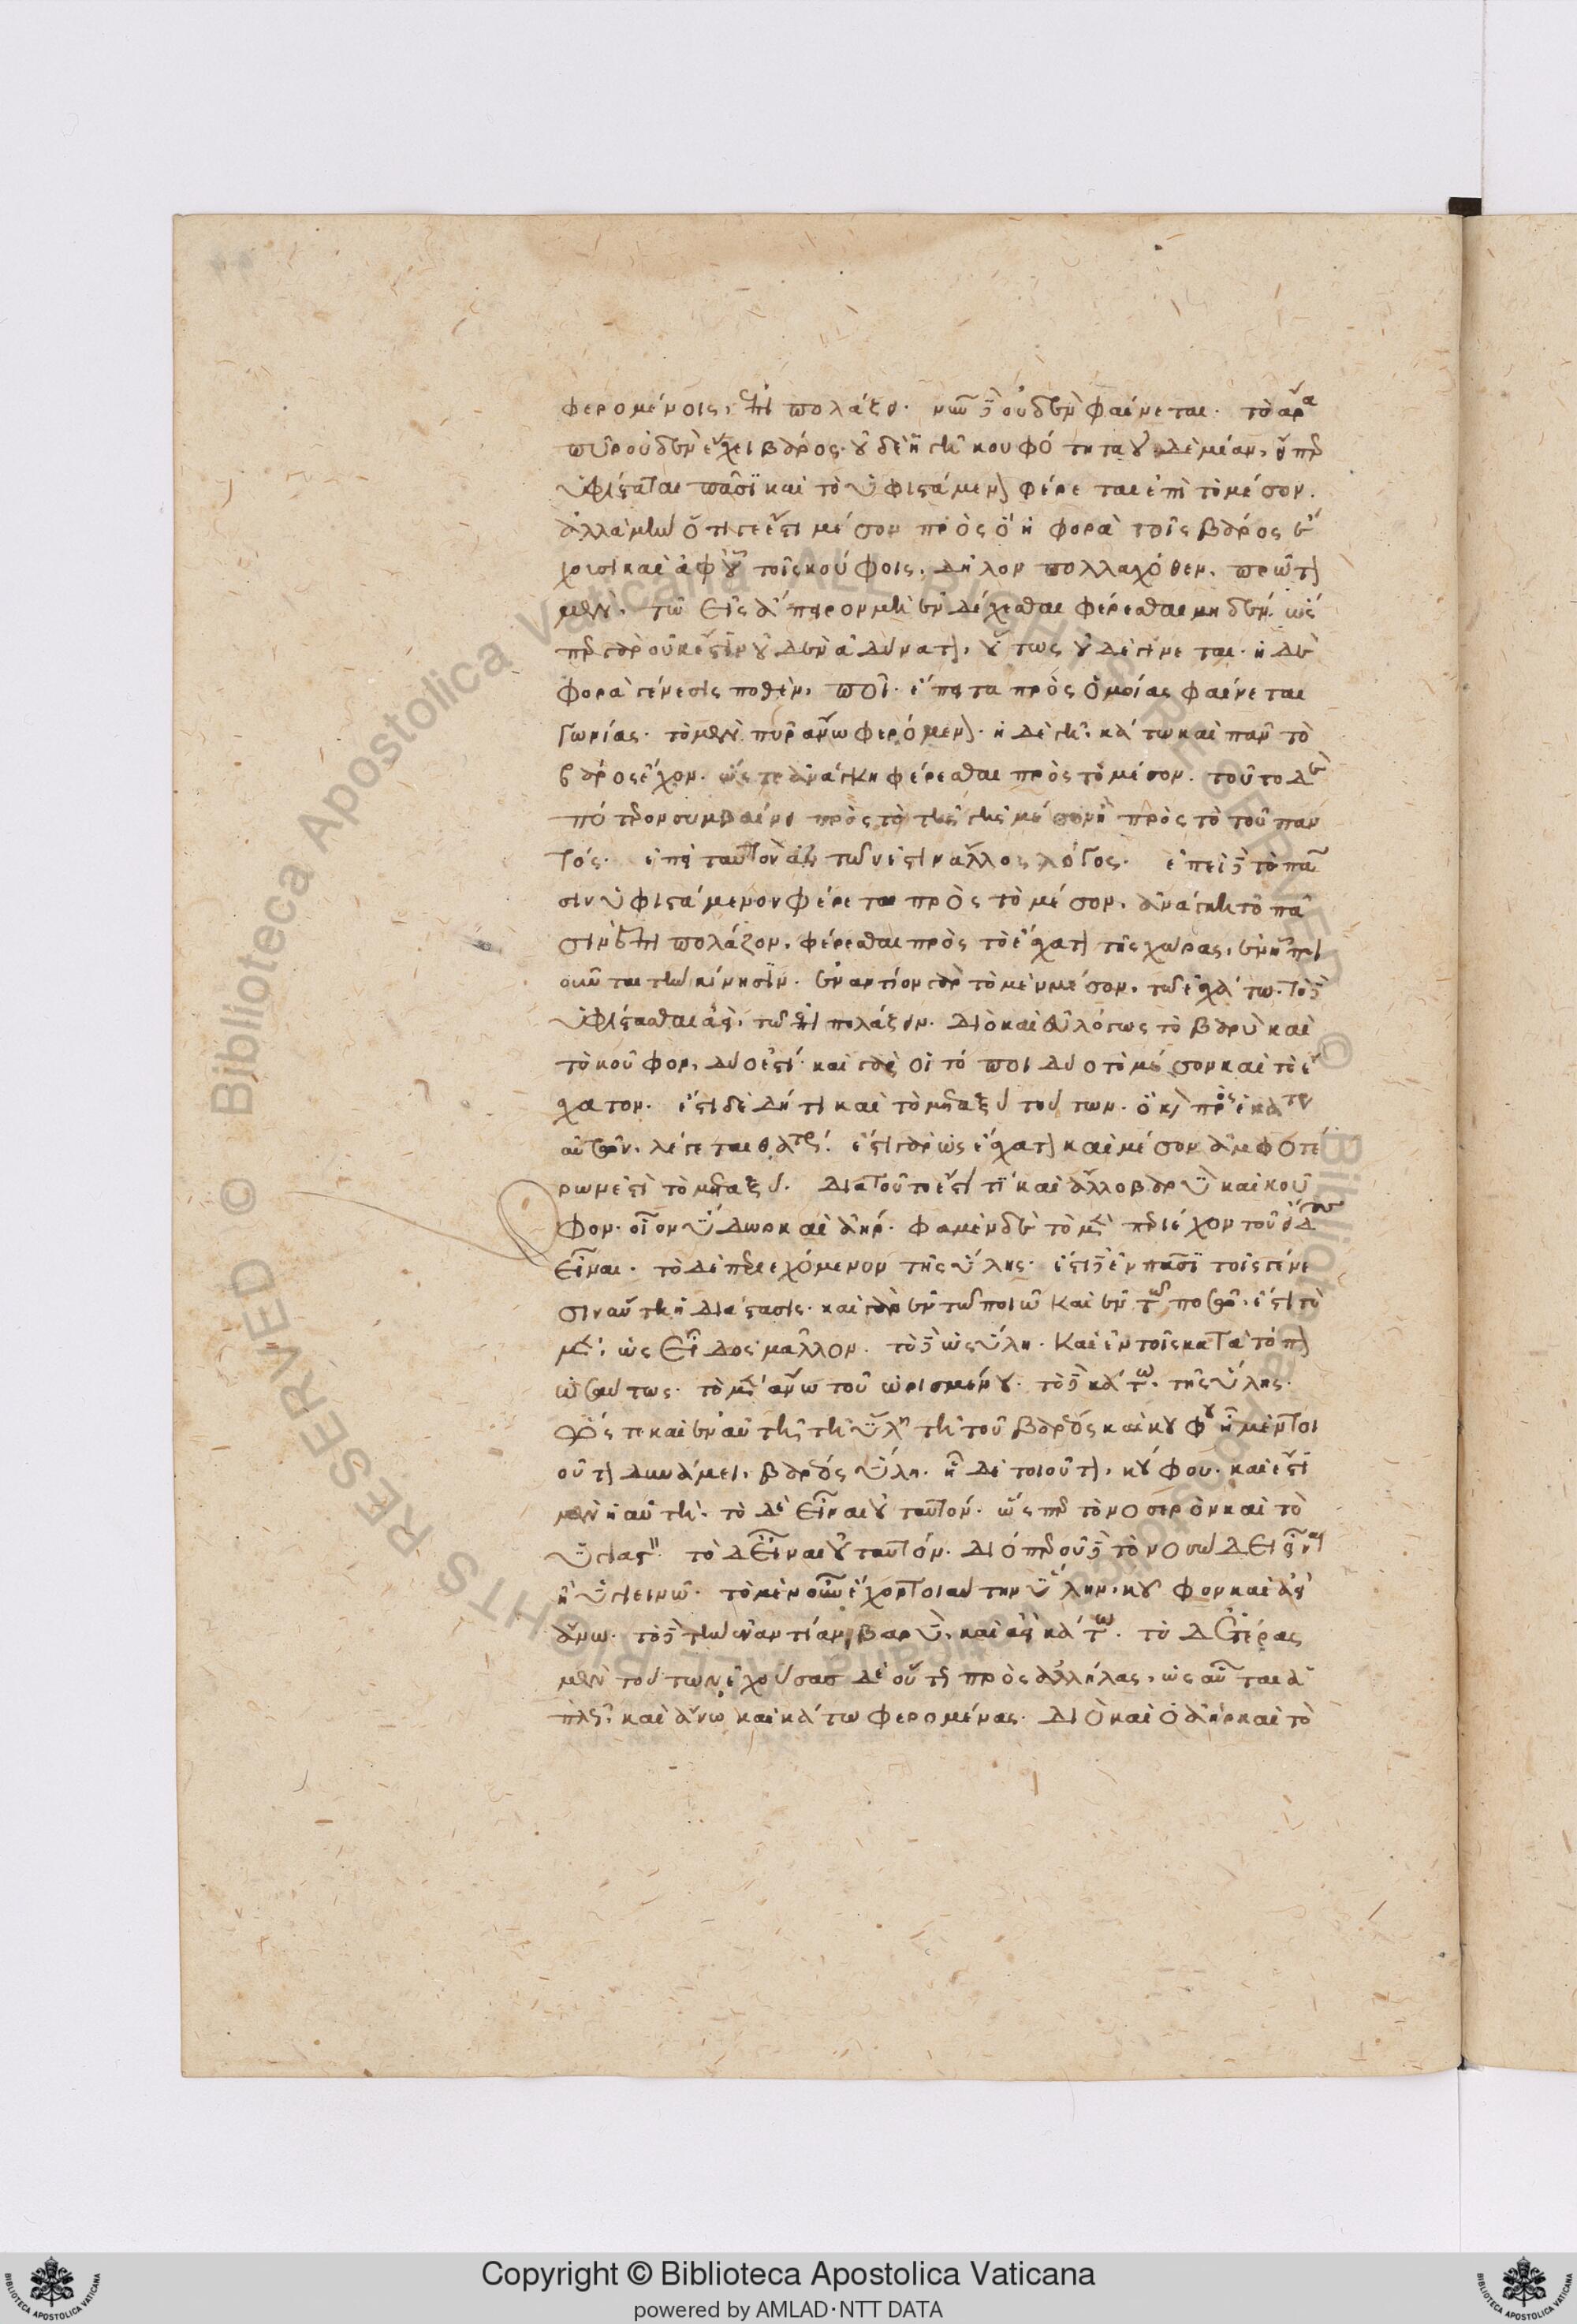 φερομένοις, ἐπιπολάζει. νῦν δὲ οὐδὲν φαίνεται. τὸ ἄρα
πῦρ οὐδὲν ἔχει βάρος. οὐδὲ ἡ γῆ κουφότητα οὐδεμίαν, εἴπερ
ὑφίσταται πᾶσι καὶ τὸ ὑφιστάμενον φέρεται ἐπὶ τὸ μέσον.
ἀλλὰ μὴν ὅτι γε ἔστι μέσον πρὸς ὃ ἡ φορὰ τοῖς βάρος ἔ
χουσι καὶ ἀφ' οὗ τοῖς κούφοις, δῆλον πολλαχόθεν. πρῶτον
μὲν, τῷ εἰς ἄπειρον μὴ ἐνδέχεσθαι φέρεσθαι μηδέν. ὥς
περ γὰρ οὐκ ἔστιν οὐδὲν ἀδύνατον, οὕτως οὐδὲ γίνεται. ἡ δὲ
φορὰ γένεσις ποθέν, ποῖ. ἔπειτα πρὸς ὁμοίας φαίνεται
γωνίας. τὸ μὲν πῦρ ἄνω φερόμενον. ἡ δὲ γῆ κάτω καὶ πᾶν τὸ
βάρος ἔχον. ὥστε ἀνάγκη φέρεσθαι πρὸς τὸ μέσον. τοῦτο δὲ
πότερον συμβαίνει πρὸς τὸ τῆς γῆς μέσον ἢ πρὸς τὸ τοῦ παν
τός. ἐπεὶ ταυτόν αὐτῶν ἐστὶν ἄλλος λόγος. ἐπεὶ δὲ τὸ πᾶ
σιν ὑφιστάμενον φέρεται πρὸς τὸ μέσον, ἀνάγκη τὸ πᾶ
σιν ἐπιπολάζον, φέρεσθαι πρὸς τὸ ἔσχατον τῆς χώρας, ἐν ᾗ ποι
οῦνται τὴν κίνησιν. ἐναντίον γὰρ τὸ μὲν μέσον, τῷ ἐσχάτῳ. τὸ δὲ
ὑφίστασθαι ἀεί, τῷ ἐπιπολάζειν. διὸ καὶ εὐλόγως τὸ βαρὺ καὶ
τὸ κοῦφον, δύο ἐστί. καὶ γὰρ οἱ τόποι δύο τὸ μέσον καὶ τὸ ἔ
σχατον. ἔστι δὲ δή τι καὶ τὸ μεταξὺ τούτων. ὃ καὶ πρὸς ἑκάτερον
αὐτῶν, λέγεται θάτερον. ἔστι γὰρ ὡς ἔσχατον καὶ μέσον ἀμφοτέ
ρων ἐστὶ τὸ μεταξύ. διὰ τοῦτο ἔστί τι καὶ ἄλλο βαρὺ καὶ κοῦ
φον. οἷον ὕδωρ καὶ ἀήρ. φαμὲν δὲ τὸ μὲν περιέχον τοῦ εἴδους
εἶναι. τὸ δὲ περιεχόμενον τῆς ὕλης. ἔστι δὲ ἐν πᾶσι τοῖς γένε
σιν αὕτη ἡ διάστασις. καὶ γὰρ ἐν τῷ ποιῷ καὶ ἐν τῷ ποσῷ, ἔστι τὸ
μὲν ὡς εἶδος μᾶλλον. τὸ δὲ ὡς ὕλη. καὶ ἐν τοῖς κατὰ τόπον
ὡσαύτως. τὸ μὲν ἄνω τοῦ ὡρισμένου. τὸ δὲ κάτω, τῆς ὕλης.
ὥστε καὶ ἐν αὐτῇ τῇ ὕλῃ τῇ τοῦ βαρέος καὶ κούφου ᾗ μὲν τοι
οῦτον δυνάμει, βαρέος ὕλη. ᾗ δὲ τοιοῦτον, κούφου. καὶ ἔστι
μὲν ἡ αὐτή. τὸ δὲ εἶναι οὐ ταυτόν. ὥσπερ τὸ νοσερὸν καὶ τὸ
ὑγιαστ. τὸ δ' εἶναι οὐ ταυτόν. διόπερ οὐδὲ τὸ νοσώδει εἶναι
ἢ ὑγιεινῷ. τὸ μὲν οὖν ἔχον τοιαύτην ὕλην, κοῦφον καὶ ἀεὶ
ἄνω. τὸ δὲ τὴν ἐναντίαν, βαρὺ, καὶ ἀεὶ κάτω. τὸ δ' ἑτέρας
μὲν τούτων ἐχούσας δὲ οὕτω πρὸς ἀλλήλας, ὡς αὗται ἁ
πλῶς καὶ ἄνω καὶ κάτω φερομένας. διὸ καὶ ὁ ἀὴρ καὶ τὸ